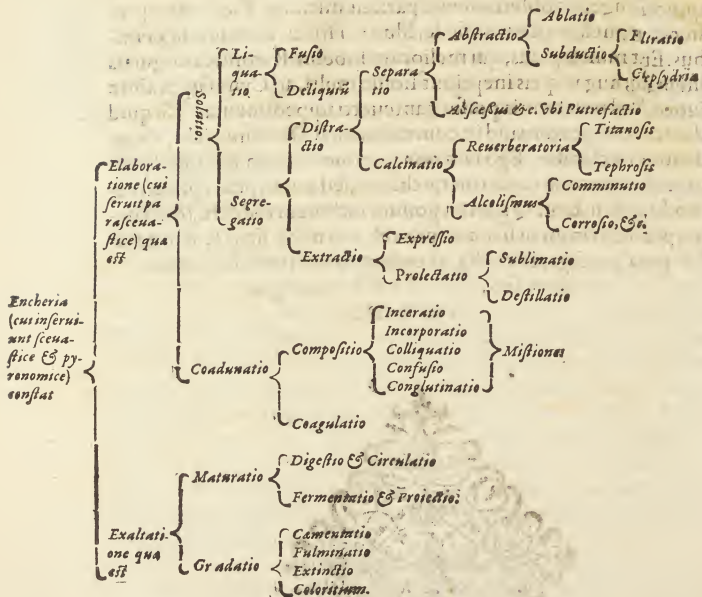 Encheria
(cui inserui-
unt sceua-
stice & py-
ronomice)
constat
Elabora-
tione (cui
seruit pa
rasceua-
stice) quæ
est
Solutio.
Li-
qua-
tio
Fusio
Deliquiũ
Segre-
gatio
Distra-
ctio
Separa
tio
Abstractio
Ablatio
Subductio
Filtratio
Clepsydria
Abscessui &c, vbi Putrefactio
Calcinatio
Reuerberatoria
Titanosis
Tephrosis
Alcolismus
Comminutio
Corrosio, &c.
Extractio
Expressio
Prolectatio
Sublimatio
Destillatio
Coadunatio
Compositio
Inceratio
Incorporatio
Colliquatio
Confusio
Conglutinatio
Mistiones
Coagulatio
Exaltati-
one quæ
est
Maturatio
Digestio & Circulatio
Fermentatio & Proiectio:
Gradatio
Cæmentatio
Fulminatio
Extinctio
Coloritium.